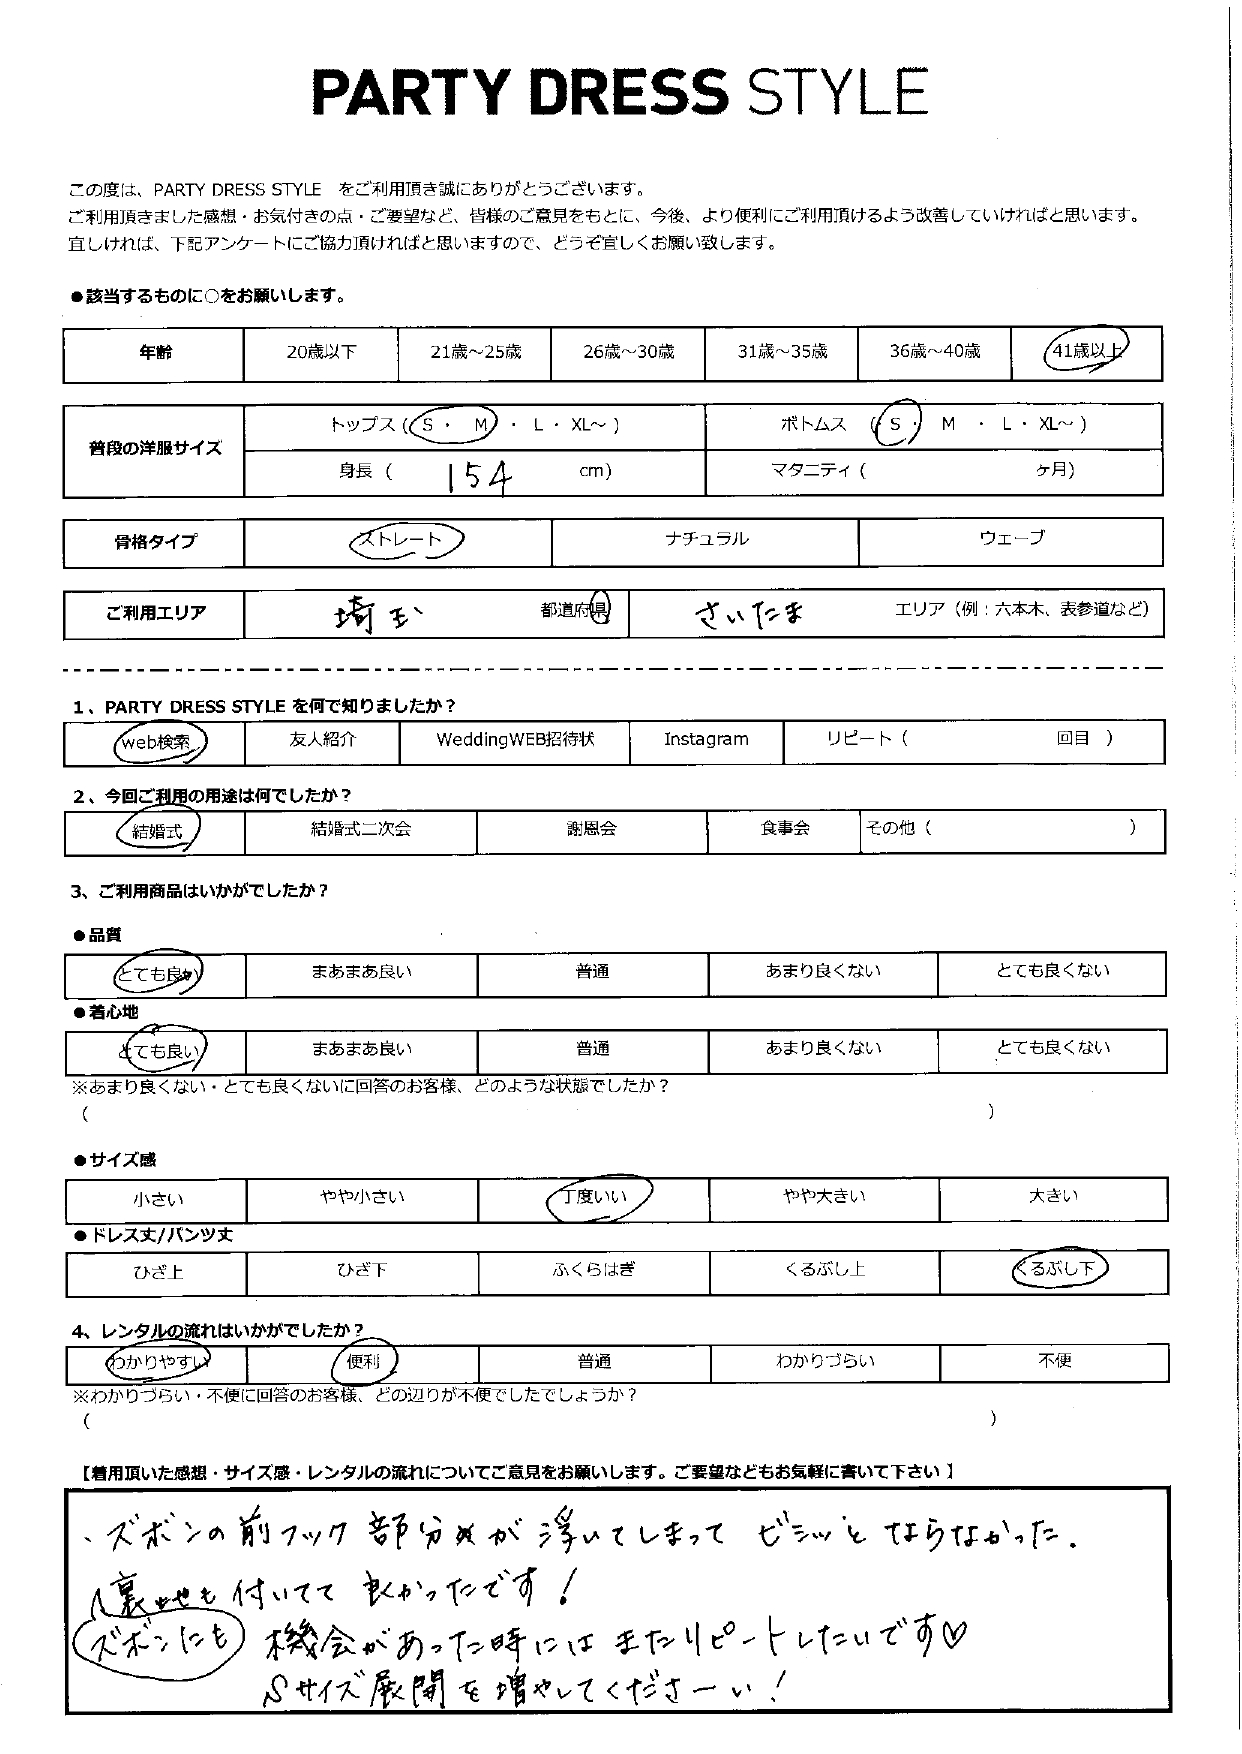 PARTY DRESS STYLE
この度は、PARTY DRESS STYLE をご利用頂き誠にありがとうございます。
ご利用頂きました感想・お気付きの点・ご要望など、皆様のご意見をもとに、今後、より便利にご利用頂けるよう改善していければと思います。
宜しければ、下記アンケートにご協力頂ければと思いますので、どうぞ宜しくお願い致します。
●該当するものに○をお願いします。
年齢 20歳以下 21歳～25歳 26歳～30歳 31歳～35歳 36歳～40歳 41歳以上
普段の洋服サイズ トップス (S ・ M ・ L ・ XL～ ) ボトムス ( S ・ M ・ L ・ XL～ )
身長 ( 154 cm) マタニティ ( ヶ月)
骨格タイプ ストレート ナチュラル ウェーブ
ご利用エリア 埼玉 都道府県 さいたま エリア（例：六本木、表参道など）
1、PARTY DRESS STYLE を何で知りましたか？
web検索 友人紹介 WeddingWEB招待状 Instagram リピート ( 回目 )
2、今回ご利用の用途は何でしたか？
結婚式 結婚式二次会 謝恩会 食事会 その他 ( )
3、ご利用商品はいかがでしたか？
●品質
とても良い まあまあ良い 普通 あまり良くない とても良くない
●着心地
とても良い まあまあ良い 普通 あまり良くない とても良くない
※あまり良くない・とても良くないに回答のお客様、どのような状態でしたか？
( )
●サイズ感
小さい やや小さい 丁度いい やや大きい 大きい
●ドレス丈/パンツ丈
ひざ上 ひざ下 ふくらはぎ くるぶし上 くるぶし下
4、レンタルの流れはいかがでしたか？
わかりやすい 便利 普通 わかりづらい 不便
※わかりづらい・不便に回答のお客様、どの辺りが不便でしたでしょうか？
( )
【着用頂いた感想・サイズ感・レンタルの流れについてご意見をお願いします。ご要望などもお気軽に書いて下さい 】
、ズボンの前フック部分が浮いてしまってビシッとならなかった.
裏地も付いてて良かったです！
ズボンにも 機会があった時にはまたリピートしたいです♡
Sサイズ展開を増やしてくださーい！